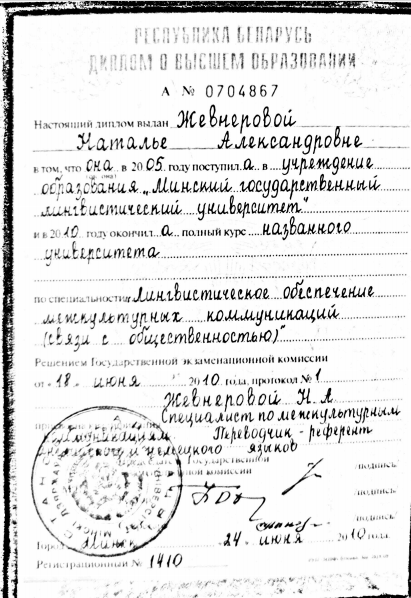 РЕСПУБЛИКА БЕЛАРУСЬ
ДИПЛОМ О ВЫСШЕМ ОБРАЗОВАНИИ
А № 0704867
Настоящий диплом выдан Жевнеровой
Наталье Александровне
в том, что она в 2005 году поступила в учреждение
образования „Минский государственный
лингвистический университет"
и в 2010 году окончила полный курс названного
университета
по специальности „Лингвистическое обеспечение
межкультурных коммуникаций
(связи с общественностью)"
Решением Государственной экзаменационной комиссии
от „18" июня 2010 года, протокол № 1
Жевнеровой Н.А
Специалист по межкультурным
коммуникациям Переводчик-референт
английского и немецкого языков
Государственной
комиссии /подпись/
/подпись/
/подпись/
Город Минск 24 июня 2010 года.
Регистрационный № 1410